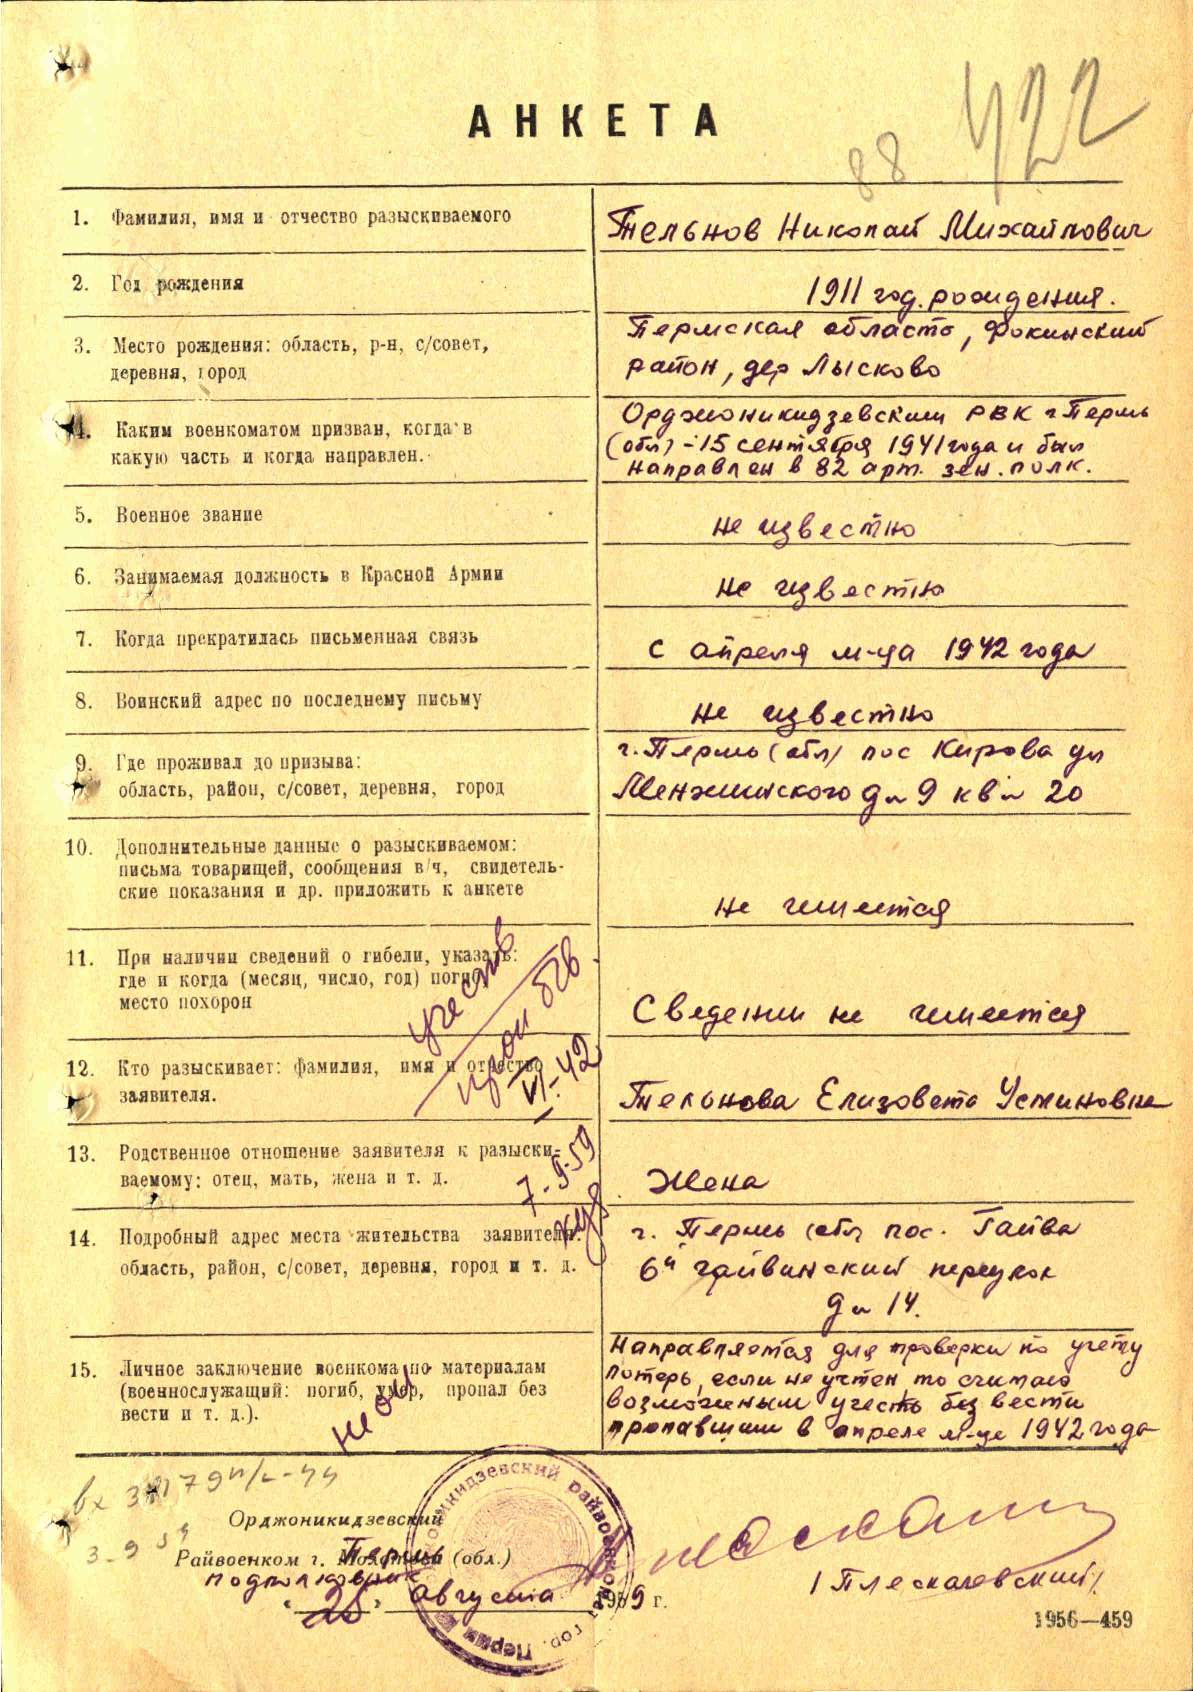 422
88
АНКЕТА
1. Фамилия, имя и отчество разыскиваемого
Тельнов Николай Михайлович
2. Год рождения
1911 год. рождения.
3. Место рождения: область, р-н, с/совет,
деревня, город
Пермская область, Фокинский
район, дер Лысково
4. Каким военкоматом призван, когда в
какую часть и когда направлен.
Орджоникидзевским РВК г Пермь
(обл) - 15 сентября 1941 года и был
направлен в 82 арт. зен. полк.
5. Военное звание
не известно
6. Занимаемая должность в Красной Армии
не известно
7. Когда прекратилась письменная связь
с апреля м-ца 1942 года
8. Воинский адрес по последнему письму
не известно
9. Где проживал до призыва:
область, район, с/совет, деревня, город
г. Пермь (обл) пос Кирова ул
Менжинского д№ 9 кв№ 20
10. Дополнительные данные о разыскиваемом:
письма товарищей, сообщения в/ч, свидетель-
ские показания и др. приложить к анкете
не имеется
11. При наличии сведений о гибели, указать:
где и когда (месяц, число, год) погиб
место похорон
Сведении не имеется
учесть
проп б/в
VI-42
12. Кто разыскивает: фамилия, имя и отчество
заявителя.
Тельнова Елизовета Устиновна
13. Родственное отношение заявителя к разыски-
ваемому: отец, мать, жена и т. д.
Жена
7-9-59
14. Подробный адрес места жительства заявителя:
область, район, с/совет, деревня, город и т. д.
г. Пермь (обл пос. Гайва
6й гайвинский переулок
д№ 14.
15. Личное заключение военкома по материалам
(военнослужащий: погиб, умер, пропал без
вести и т. д.).
Направляется для проверки по учету
потерь, если не учтен то считаю
возможным учесть без вести
пропавшим в апреле м-це 1942 года
вх
3-9 59
Орджоникидзевский
Райвоенком г. Пермь (обл.)
подполковник
(Плескачевский)
"25" августа 1959 г.
Орджоникидзевский райвоенкомат гор. Перми
1956—459